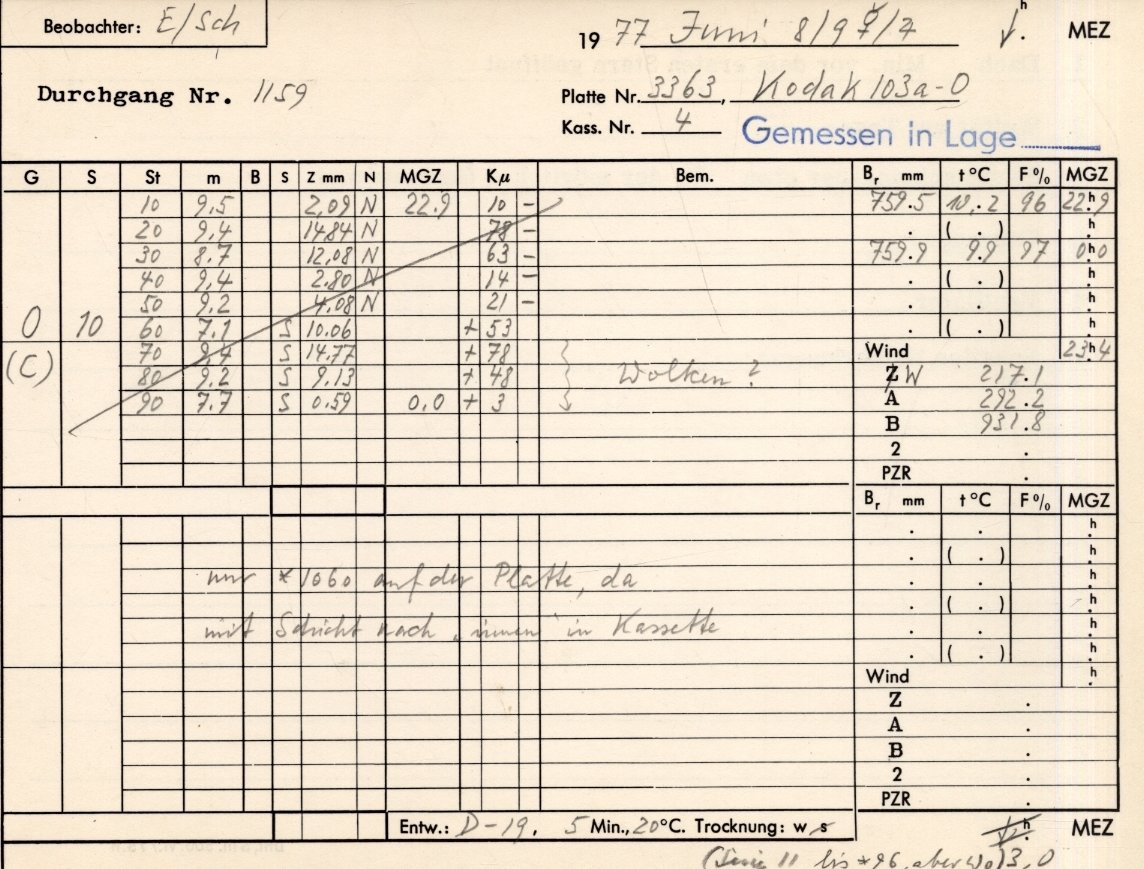 Beobachter: E/Sch
19 77 Juni 8/9 MEZ
Durchgang Nr. 1159
Platte Nr. 3363, Kodak 103a-O
Kass. Nr. 4 Gemessen in Lage
G S St m B S Z mm N MGZ Kμ Bem. Br mm t °C F % MGZ
10 9,5 2,09 N 22.9 10 - 759.5 10.2 96 22h.9
20 9,4 14,84 N 78 - . ( . ) h.
30 8.7 12,08 N 63 - 759.9 9.9 97 0h.0
40 9,4 2.80 N 14 - . ( . ) h.
50 9.2 4.08 N 21 - . . h.
0 10 60 7.1 S 10.06 + 53 . ( . ) h.
(C) 70 9.4 S 14,77 + 78 Wind 23h.4
80 9.2 S 9,13 + 48 Wolken? Z W 217.1
90 7.7 S 0.59 0,0 + 3 A 292.2
B 931.8
2 .
PZR .
Br mm t °C F % MGZ
. . h.
. ( . ) h.
nur *1060 auf der Platte, da . . h.
. ( . ) h.
mit Schicht nach „innen" in Kassette . . h.
. ( . ) h.
Wind h.
Z .
A .
B .
2 .
PZR .
Entw.: D-19, 5 Min., 20°C. Trocknung: w s h. MEZ
(Serie 11 bis *96, aber Wo) 3,0